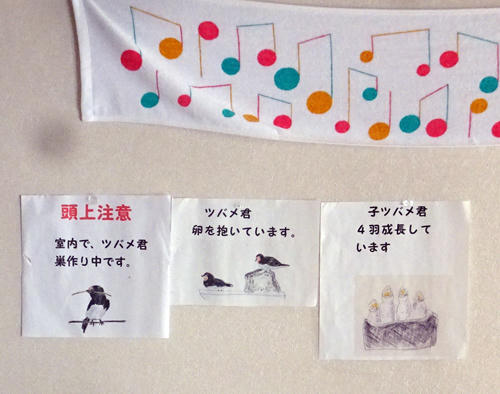 頭上注意
室内で、ツバメ君
巣作り中です。
ツバメ君
卵を抱いています。
子ツバメ君
4羽成長して
います